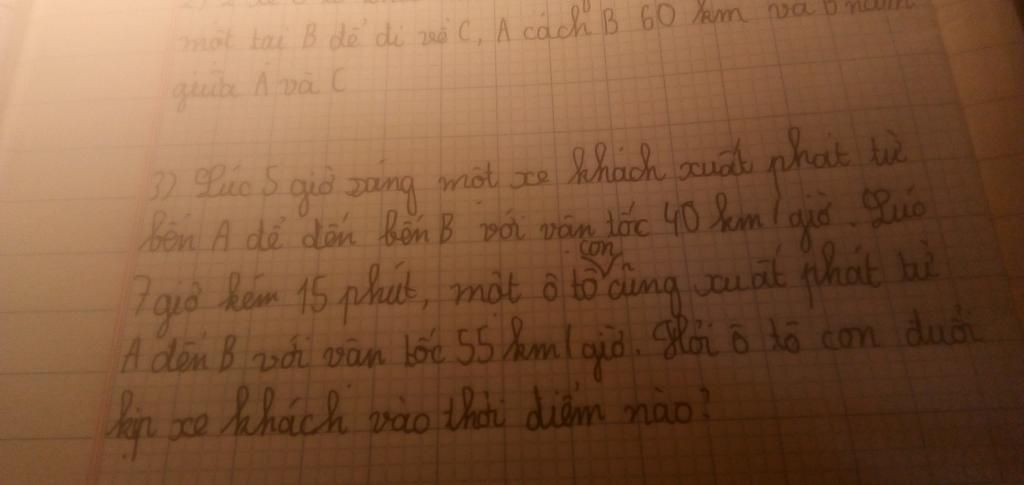 một tại B để đi về C, A cách B 60 km và B nằm
giữa A và C
3) Lúc 5 giờ sáng một xe khách xuất phát từ
bến A để đến bến B với vân tốc 40 km/giờ. Lúc
con
7 giờ kém 15 phút, một ô tô cũng xuất phát từ
A đến B với vân tốc 55 km/giờ. Hỏi ô tô con đuổi
kịp xe khách vào thời điểm nào?